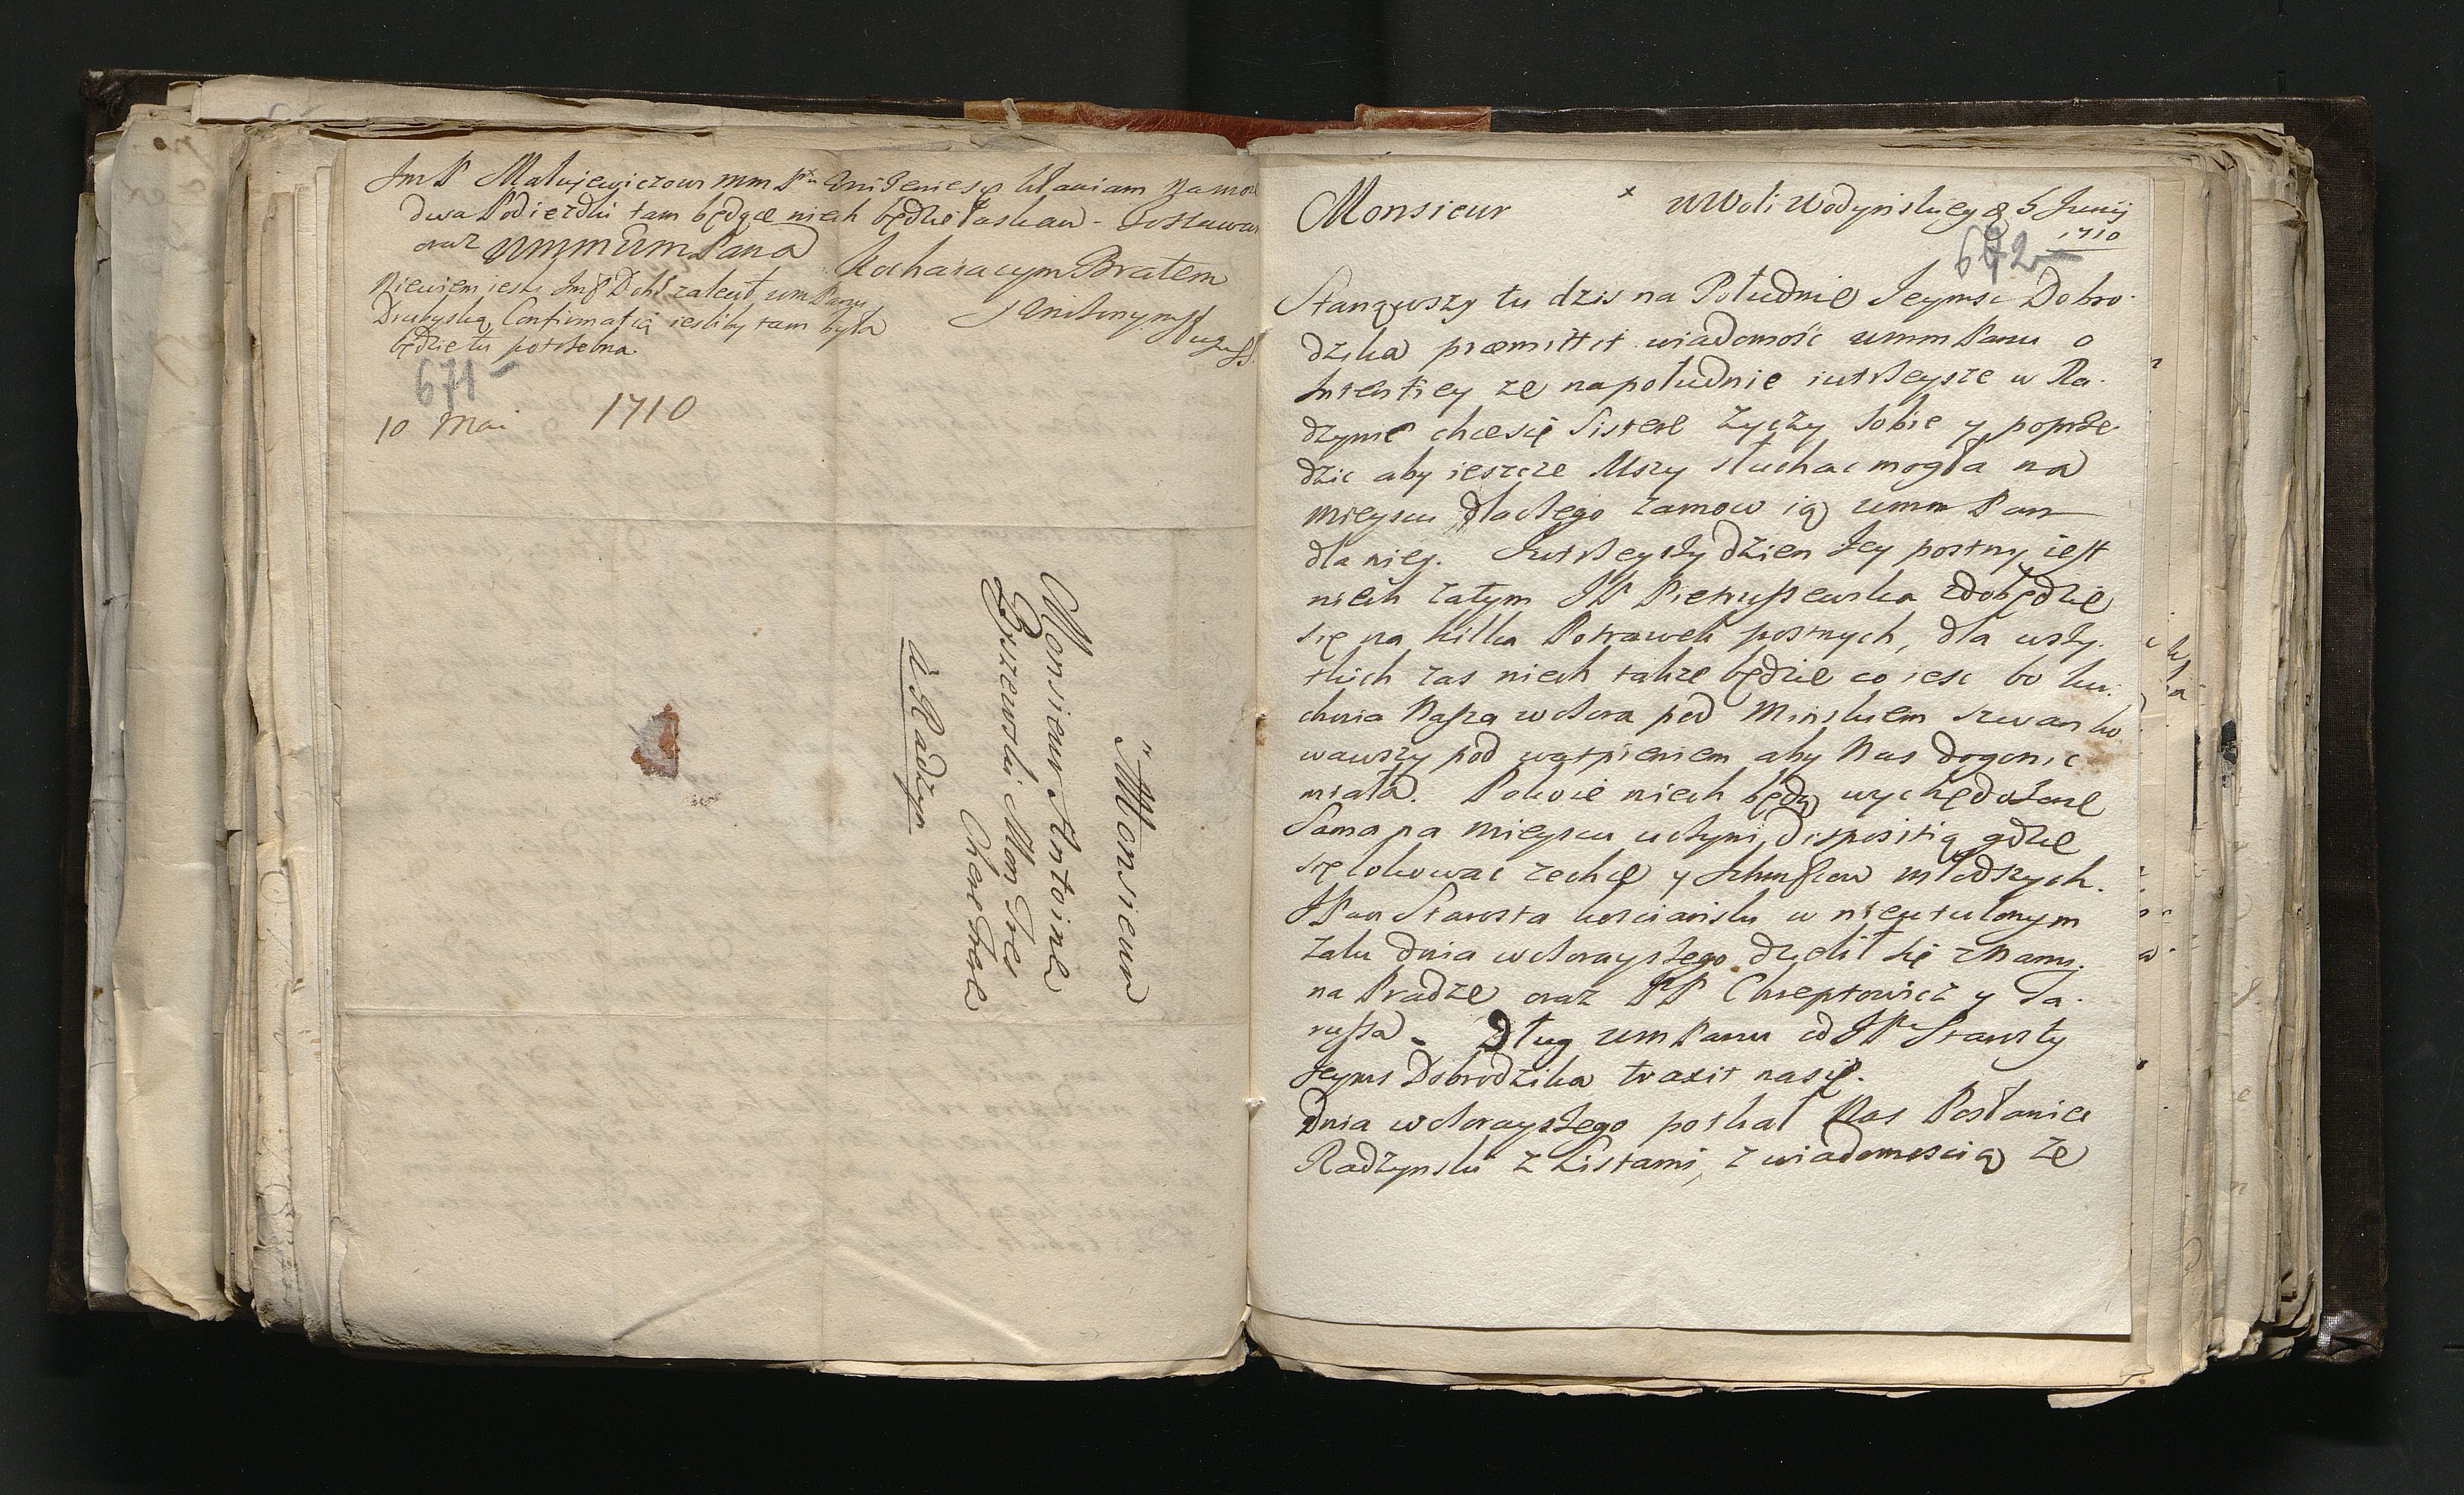 JmP Matujewiczowi mm Pn uniżenie się kłaniam
dwa Podiezdki tam będące niech będzie łaskaw
oraz ummum Pana
Kochaiacym Bratem
Niewiem iesli Jmś Dobś zalecił um Panu
Confirmatią iesliby tam była
będzie tu potrzebna
671
10 Mai 1710
"A Monsieur
Monsieur Antoine
Brzezowski Mon Tres
Cher Frere
à Radzyn
Monsieur × w Woli Wodynskiey d 5 Junij
1710
672
Stanąwszy tu dzis na Południe Jeymsc Dobro-
dzika præmittit wiadomość umm Panu o
Intentiey ze napołudnie iutrzeysze w Ra-
dzynie chce się sistere życzy sobie y poprze
dzic aby ieszcze Mszy słuchac mogła na
mieyscu dlactego zamow ią umm Pan
dla niey. Jutrzeyszy dzien Jey postny iest
niech zatym JP Pietruszewska zdobędzie
się na kilka Potrawek postnych, dla wszy-
stkich zas niech także będzie co iesc bo ku-
chnia Nasza wczora pod Minskiem szwanko
wawszy pod wątpieniem aby Nas dogonic
miała. Pokoie niech będą wychędożone
Sama na mieyscu uczyni dispositią gdzie
się lokowac zechce y Ichmsciow młodszych.
JPan Starosta kosciański w nieutulonym
żalu dnia wczorayszego dzielił się z Nami
na Pradze oraz PP Chreptowicz y Ta-
russa. Dług um Panu od JP Starosty
Jeyms Dobrodzika traxit nasię.
Dnia wczorayszego potkał Nas Posłaniec
Radzynski z Listami, z wiadomoscią ze